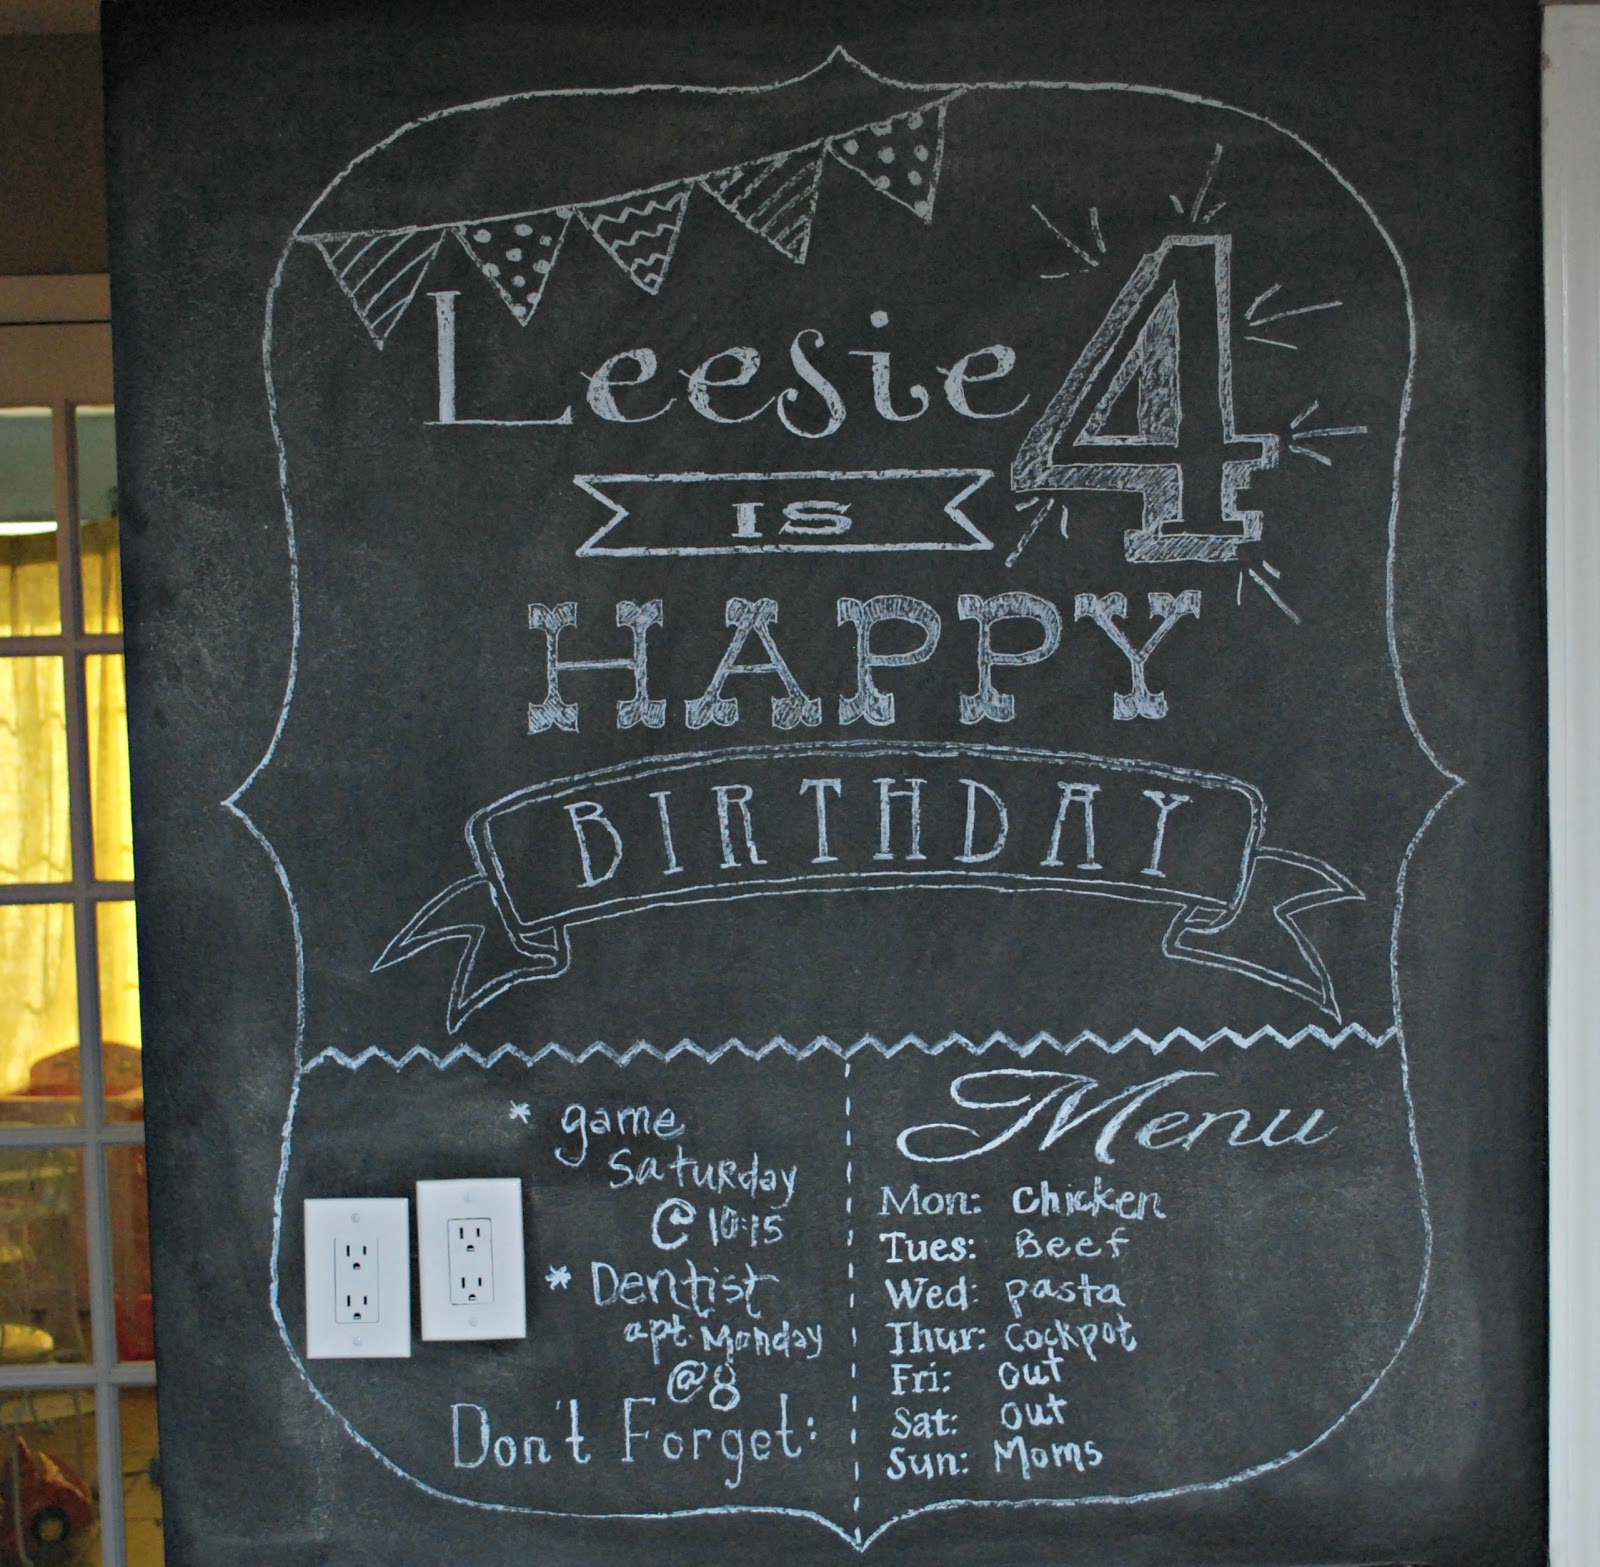 Leesie 4
IS
HAPPY
BIRTHDAY
* game
Saturday
@ 10:15
* Dentist
apt. Monday
@ 8
Don't Forget:
Menu
Mon: Chicken
Tues: Beef
Wed: pasta
Thur: Cockpot
Fri: out
Sat: out
Sun: Moms